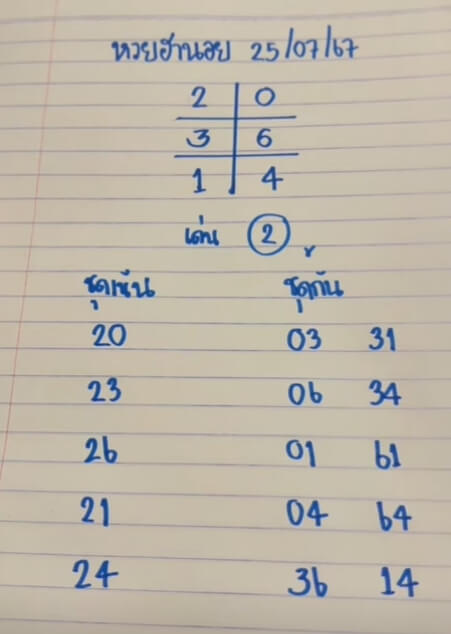 หวยฮานอย 25/07/67
2 0
3 6
1 4
เด่น 2
ชุดเน้น ชุดกัน
20 03 31
23 06 34
26 01 61
21 04 64
24 36 14